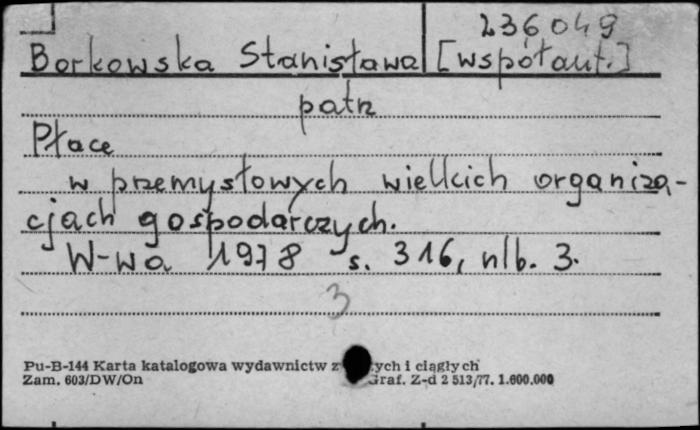 236049
Borkowska Stanisława [współaut.]
patrz
Płace
w przemysłowych wielkich organiza-
cjach gospodarczych.
W-wa 1978 s. 316, nlb. 3.
3
Pu-B-144 Karta katalogowa wydawnictw z tych i ciągłych
Zam. 603/DW/On Graf. Z-d 2 513/77. 1.600.000